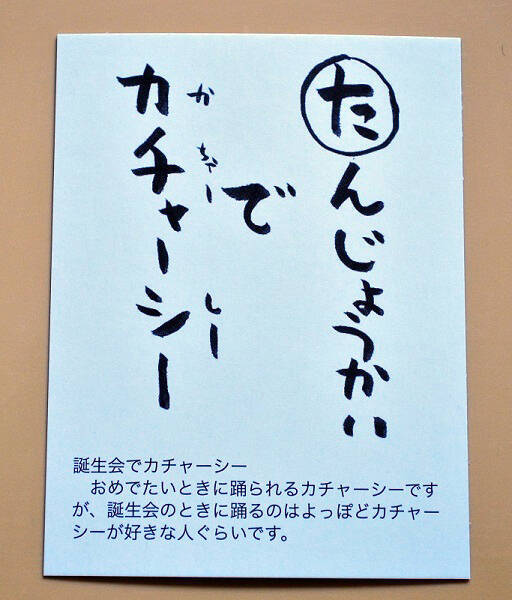 たんじょうかい
で
カチャーシー
かちゃーしー
誕生会でカチャーシー
　おめでたいときに踊られるカチャーシーです
が、誕生会のときに踊るのはよっぽどカチャー
シーが好きな人ぐらいです。